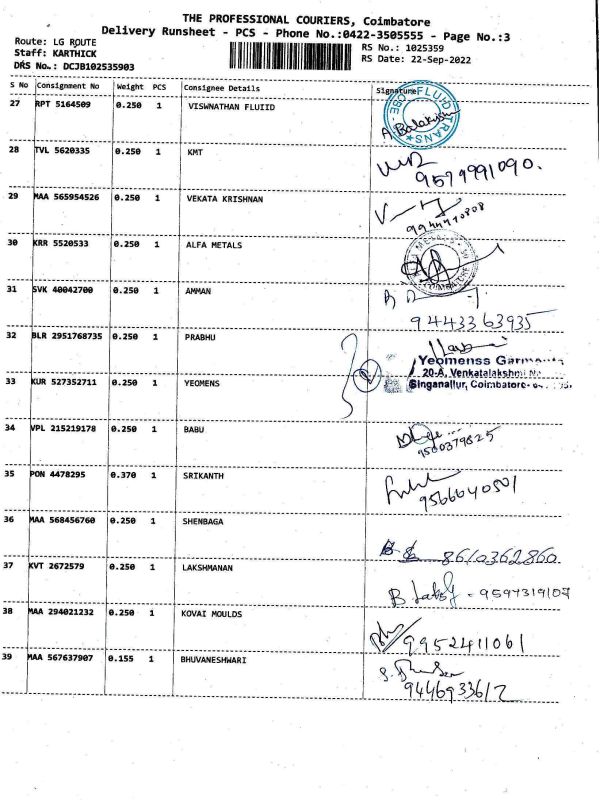 THE PROFESSIONAL COURIERS, Coimbatore
Delivery Runsheet - PCS - Phone No.:0422-3505555 - Page No.:3
Route: LG ROUTE
Staff: KARTHICK
DRS No.: DCJB102535903
RS No.: 1025359
RS Date: 22-Sep-2022
S No Consignment No Weight PCS Consignee Details Signature
27 RPT 5164509 0.250 1 VISWNATHAN FLUIID
FLUID TRANS
A. Balakrishn
28 TVL 5620335 0.250 1 KMT
9579991090.
29 MAA 565954526 0.250 1 VEKATA KRISHNAN
9944770808
30 KRR 5520533 0.250 1 ALFA METALS
31 SVK 40042700 0.250 1 AMMAN
9443363935
32 BLR 2951768735 0.250 1 PRABHU
Yeomenss Garments
20-A, Venkatalakshmi
Singanallur, Coimbatore-
33 KUR 527352711 0.250 1 YEOMENS
34 VPL 215219178 0.250 1 BABU
9500379825
35 PON 4478295 0.370 1 SRIKANTH
9566640501
36 MAA 568456760 0.250 1 SHENBAGA
8610362860.
37 KVT 2672579 0.250 1 LAKSHMANAN
B - 9597319107
38 MAA 294021232 0.250 1 KOVAI MOULDS
9952411061
39 MAA 567637907 0.155 1 BHUVANESHWARI
9446933617